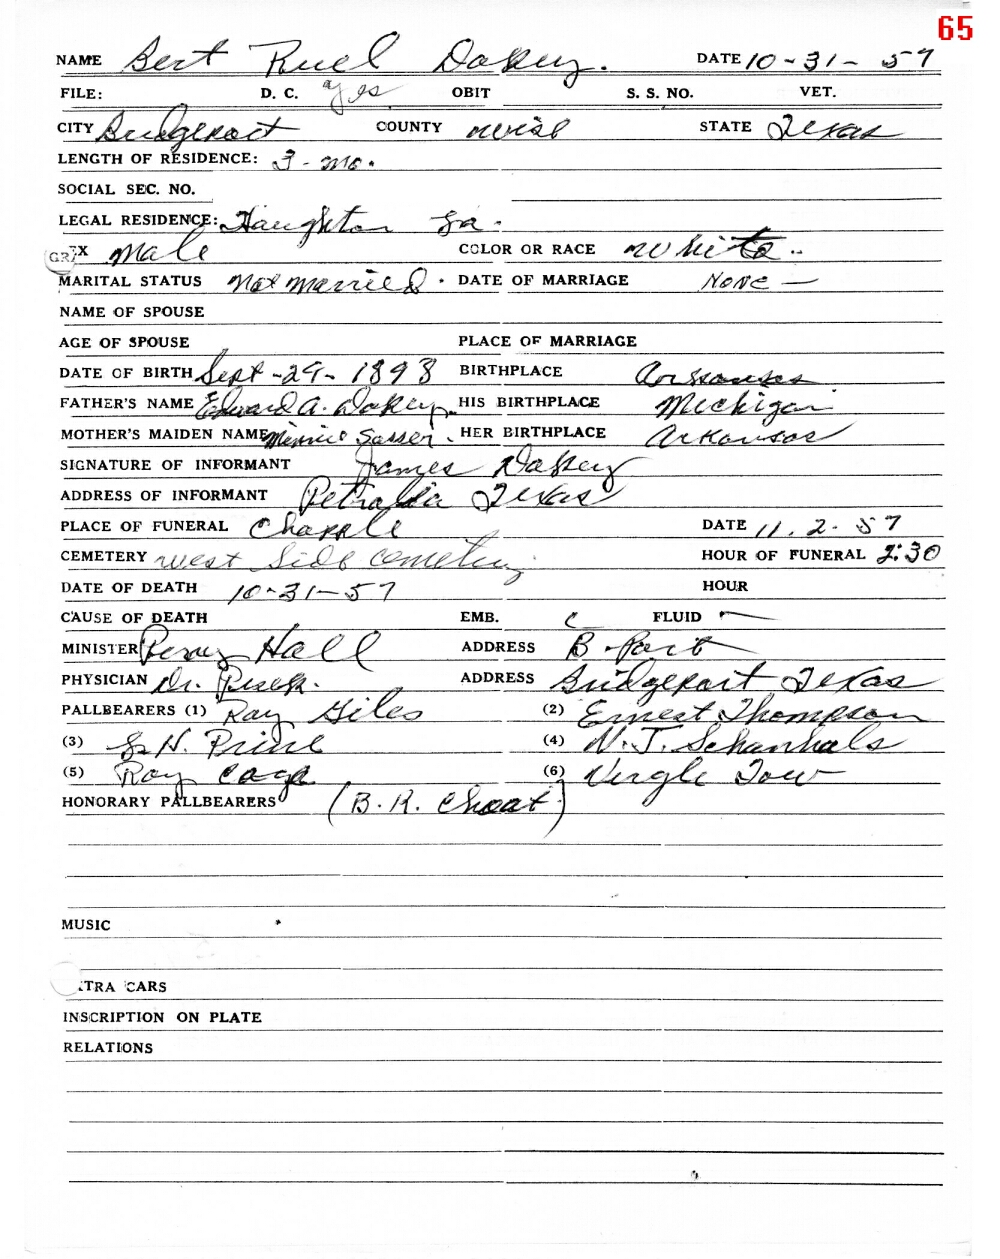 65
NAME Bert Ruel Dakey. DATE 10-31-57
FILE: D. C. yes OBIT S. S. NO. VET.
CITY Bridgeport COUNTY Wise STATE Texas
LENGTH OF RESIDENCE: 3-mo.
SOCIAL SEC. NO.
LEGAL RESIDENCE: Haughton La.
GR X Male COLOR OR RACE White
MARITAL STATUS Not Married. DATE OF MARRIAGE None —
NAME OF SPOUSE
AGE OF SPOUSE PLACE OF MARRIAGE
DATE OF BIRTH Sept-29-1898 BIRTHPLACE Arkansas
FATHER'S NAME Edward A. Dakey. HIS BIRTHPLACE Michigan
MOTHER'S MAIDEN NAME Minnie Sasser. HER BIRTHPLACE Arkansas
SIGNATURE OF INFORMANT James Dakey
ADDRESS OF INFORMANT Texas
PLACE OF FUNERAL Chapple DATE 11.2.57
CEMETERY West Side Cemetery HOUR OF FUNERAL 2:30
DATE OF DEATH 10-31-57 HOUR
CAUSE OF DEATH EMB. FLUID
MINISTER Percy Hall ADDRESS B-Port
PHYSICIAN Dr. ADDRESS Bridgeport Texas
PALLBEARERS (1) Ray Giles (2) Ernest Thompson
(3) H. Prine (4) N. J. Schanhals
(5) Ray Cage (6) Vergle Tow
HONORARY PALLBEARERS (B. R. Choat)
MUSIC
TRA CARS
INSCRIPTION ON PLATE
RELATIONS